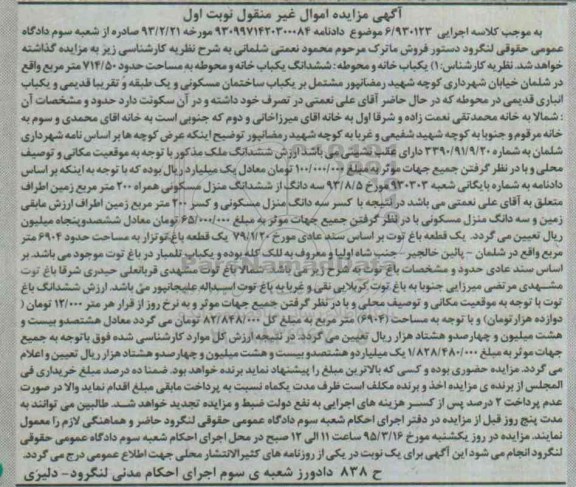 آگهی مزایده اموال غیر منقول نوبت اول
به موجب کلاسه اجرایی ۶/۹۳۰۱۲۳ موضوع دادنامه ۹۳۰۹۹۷۱۴۲۰۳۰۰۰۸۴ مورخه ۹۳/۲/۲۱ صادره از شعبه سوم دادگاه
عمومی حقوقی لنگرود دستور فروش ماترک مرحوم محمود نعمتی شلمانی به شرح نظریه کارشناسی زیر به مزایده گذاشته
خواهد شد. نظریه کارشناس: ۱) یکباب خانه و محوطه: ششدانگ یکباب خانه و محوطه به مساحت حدود ۷۱۴/۵۰ متر مربع واقع
در شلمان خیابان شهرداری کوچه شهید رمضانپور مشتمل بر یکباب ساختمان مسکونی و یک طبقه و تقریبا قدیمی و یکباب
انباری قدیمی در محوطه که در حال حاضر آقای علی نعمتی در تصرف خود داشته و در آن سکونت دارد حدود و مشخصات آن
: شمالا به خانه محمدتقی نعمت زاده و شرقا اول به خانه اقای میرزاخانی و دوم که جنوبی است به خانه اقای محمدی و سوم به
خانه مرقوم و جنوبا به کوچه شهید شفیعی و غربا به کوچه شهید رمضانپور توضیح اینکه عرض کوچه ها بر اساس نامه شهرداری
شلمان به شماره ۳۳۹۰/۹۱/۹/۲۰ دارای عقب نشینی می باشد ارزش ششدانگ ملک مذکور با توجه به موقعیت مکانی و توصیف
محلی و با در نظر گرفتن جمیع جهات موثر به مبلغ ۱۰۰/۰۰۰/۰۰۰ تومان معادل یک میلیارد ریال بوده که با توجه به اینکه بر اساس
دادنامه به شماره بایگانی شعبه ۹۳۰۳۰۳ مورخ ۹۳/۸/۵ سه دانگ از ششدانگ منزل مسکونی همراه ۲۰۰ متر مربع زمین اطراف
متعلق به آقای علی نعمتی می باشد در نتیجه با کسر سه دانگ منزل مسکونی و کسر ۲۰۰ متر مربع زمین اطراف ارزش مابقی
زمین و سه دانگ منزل مسکونی با در نظر گرفتن جمیع جهات موثر به مبلغ ۶۵/۰۰۰/۰۰۰ تومان معادل ششصدوپنجاه میلیون
ریال تعیین می گردد. یک قطعه باغ توت بر اساس سند عادی مورخ ۷۹/۱/۲۰ یک قطعه باغ توتزار به مساحت حدود ۶۹۰۴ متر
مربع واقع در شلمان – پائین خالجیر – جنب شاه اولیا و معروف به للک کله بوده و یکباب تلمبار در باغ توت موجود می باشد. بر
اساس سند عادی حدود و مشخصات باغ توت به شرح زیر می باشد: شمالا باغ توت مشهدی قربانعلی حیدری شرقا باغ توت
مشهدی مرتضی میرزایی جنوبا به باغ توت کربلایی نقی و غربا به باغ توت اسداله علیجانپور می باشد. ارزش ششدانگ باغ
توت با توجه به موقعیت مکانی و توصیف محلی و با در نظر گرفتن جمیع جهات موثر و به نرخ روز از قرار هر متر ۱۲/۰۰۰ تومان (
دوازده هزار تومان) و با توجه به مساحت (۶۹۰۴) متر مربع به مبلغ کل ۸۲/۸۴۸/۰۰۰ تومان می گردد معادل هشتصدو بیست و
هشت میلیون و چهارصدو هشتاد هزار ریال تعیین می گردد. در نتیجه ارزش کل موارد کارشناسی شده فوق باتوجه به جمیع
جهات موثر به مبلغ ۱/۸۲۸/۴۸۰/۰۰۰ یک میلیاردو هشتصدو بیست و هشت میلیون و چهارصدو هشتاد هزار ریال تعیین و اعلام
می گردد. مزایده حضوری بوده و کسی که بالاترین مبلغ را پیشنهاد نماید برنده خواهد بود. ضمنا ده درصد مبلغ خریداری فی
المجلس از برنده ی مزایده اخذ و برنده مکلف است ظرف مدت یکماه نسبت به پرداخت مابقی مبلغ اقدام نماید والا در صورت
عدم پرداخت ۲ درصد پس از کسر هزینه های اجرایی به نفع دولت ضبط و مزایده تجدید خواهد شد. طالبین می توانند به
مدت پنج روز قبل از مزایده در دفتر اجرای احکام شعبه سوم دادگاه عمومی حقوقی لنگرود حاضر و هماهنگی لازم را معمول
نمایند. مزایده در روز یکشنبه مورخ ۹۵/۳/۱۶ ساعت ۱۱ الی ۱۲ صبح در محل اجرای احکام شعبه سوم دادگاه عمومی حقوقی
لنگرود انجام می شود این آگهی برای یک نوبت در یکی از روزنامه های کثیرالانتشار محلی جهت اطلاع عمومی درج می گردد.
ح ۸۳۸ دادورز شعبه ی سوم اجرای احکام مدنی لنگرود- دلیزی